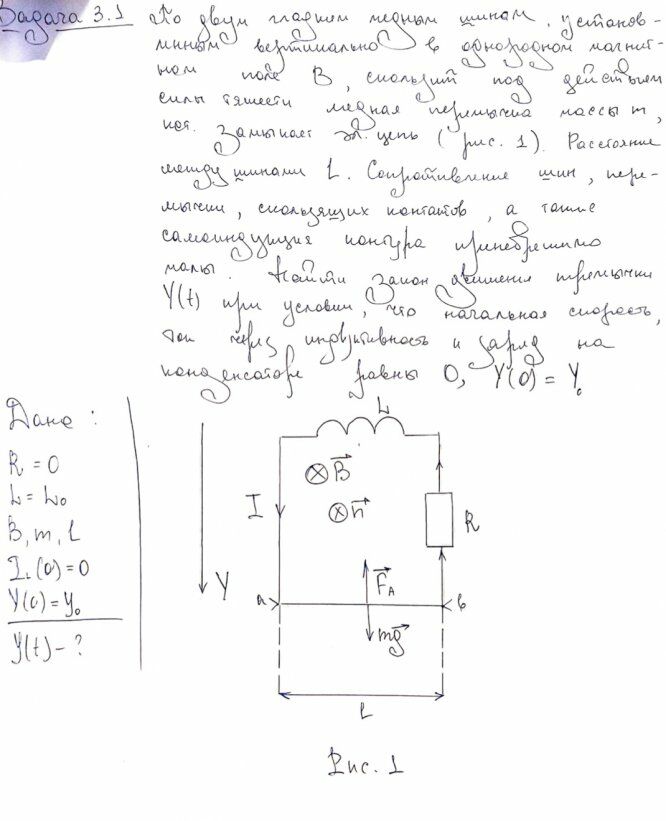 Задача 3.1 По двум гладким медным шинам, установ-
ленным вертикально в однородном магнит-
ном поле B, скользит под действием
силы тяжести медная перемычка массы m,
кот. замыкает эл. цепь (рис. 1). Расстояние
между шинами L. Сопротивление шин, пере-
мычки, скользящих контактов, а также
самоиндукция контура пренебрежимо
малы. Найти закон движения перемычки
Y(t) при условии, что начальная скорость,
ток через индуктивность и заряд на
конденсаторе равны 0, Y(0) = Y₀
Дано:
R = 0
L = L₀
B, m, L
I.(0) = 0
Y(0) = Y₀
Y(t) - ?
L
⊗ B⃗
⊗ n⃗
I
R
Y
F⃗A
a
b
mg⃗
L
Рис. 1